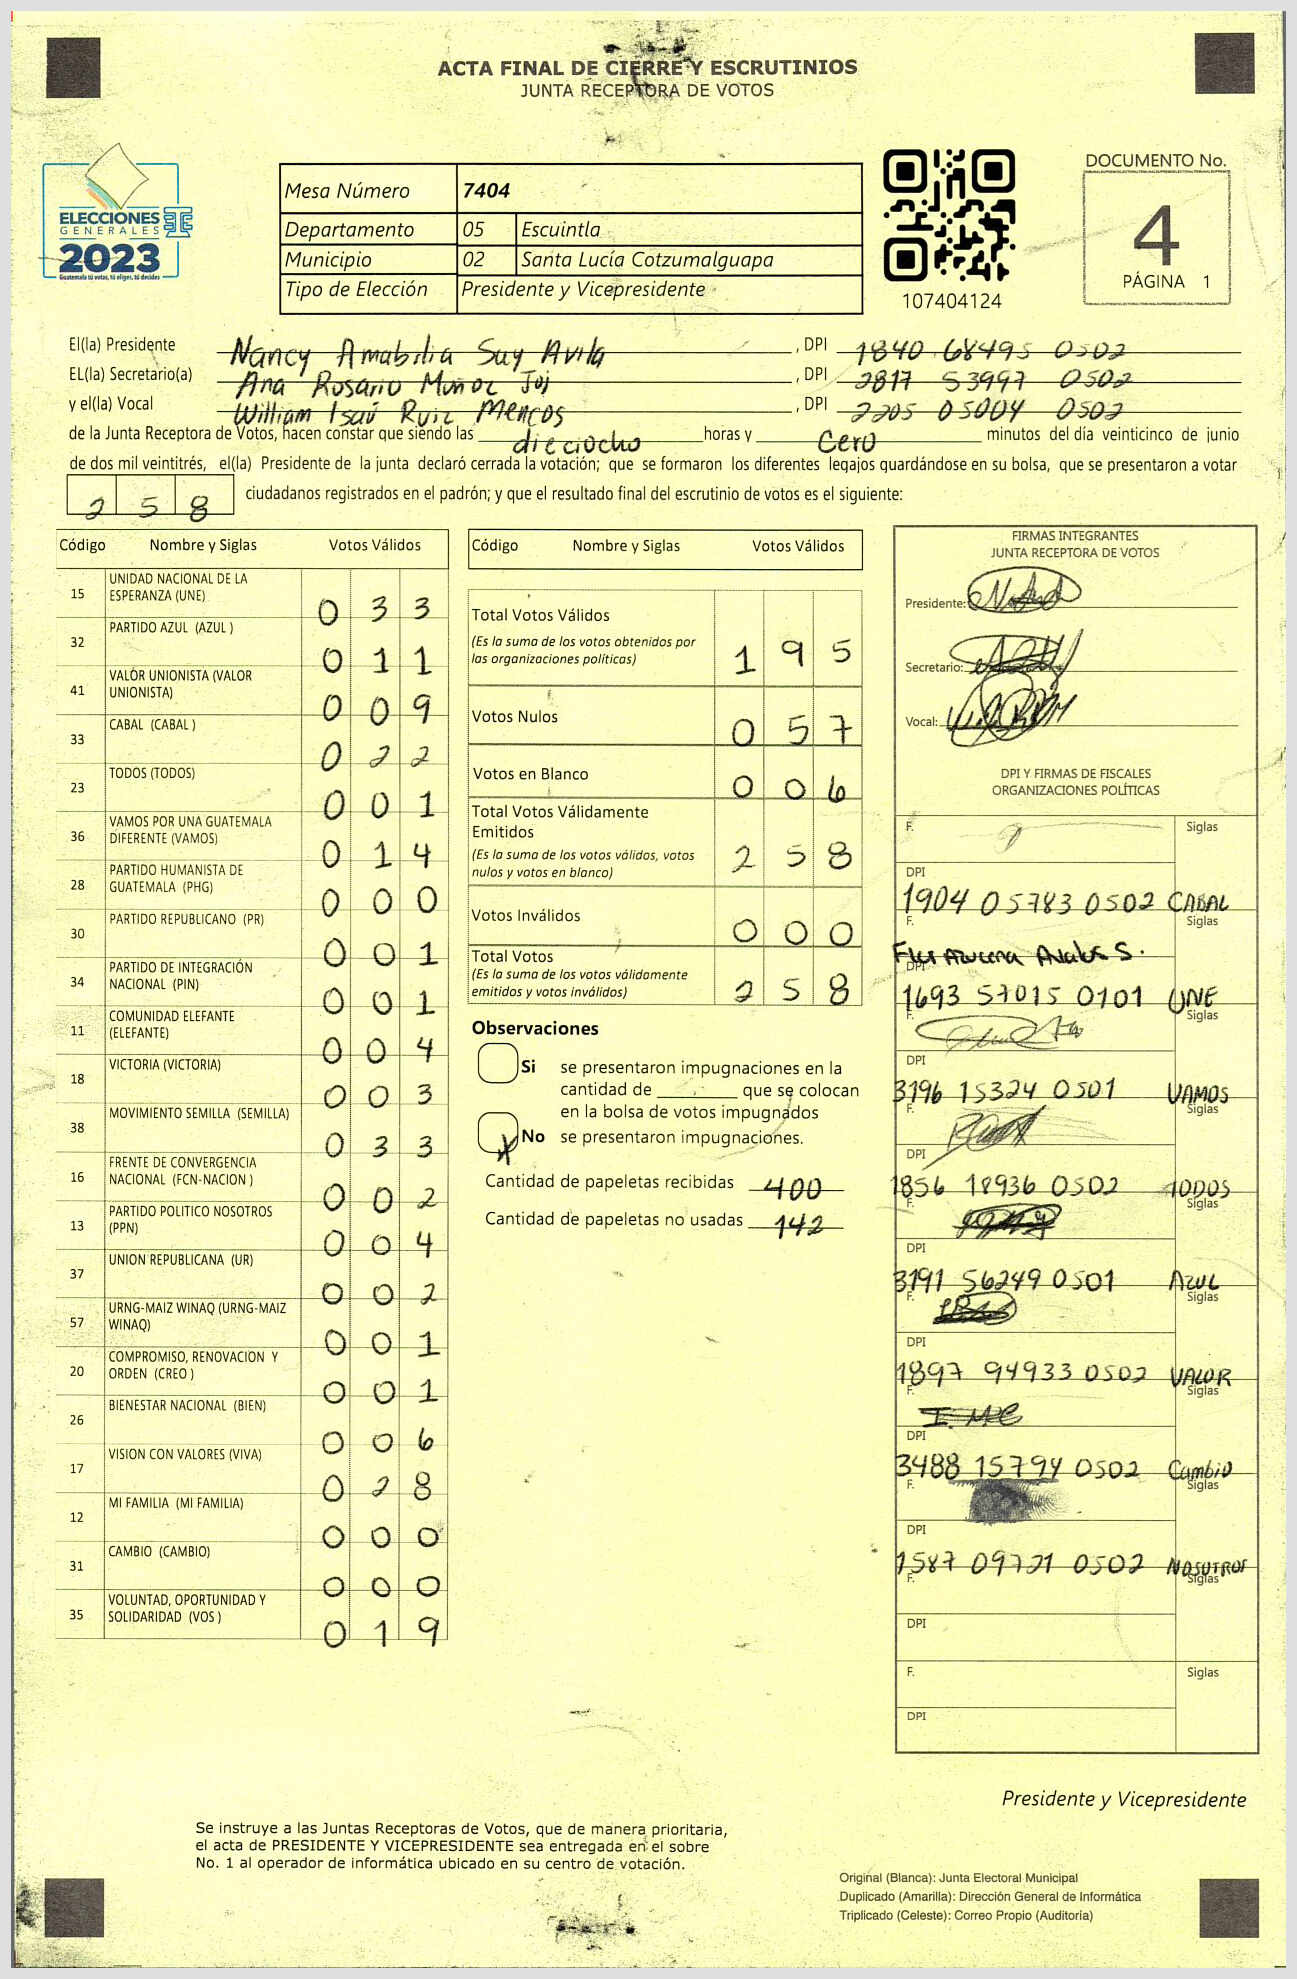 ACTA FINAL DE CIERRE Y ESCRUTINIOS
JUNTA RECEPTORA DE VOTOS
ELECCIONES
GENERALES
2023
Guatemala tú votas, tú eliges, tú decides
Mesa Número 7404
Departamento 05 Escuintla
Municipio 02 Santa Lucía Cotzumalguapa
Tipo de Elección Presidente y Vicepresidente
107404124
DOCUMENTO No.
4
PÁGINA 1
El(la) Presidente Nancy Amabilia Suy Avila , DPI 1840 68495 0502
EL(la) Secretario(a) Ana Rosario Muñoz Joj , DPI 2817 53997 0502
y el(la) Vocal William Isaú Ruiz Mencos , DPI 2205 05004 0502
de la Junta Receptora de Votos, hacen constar que siendo las dieciocho horas y Cero minutos del día veinticinco de junio
de dos mil veintitrés, el(la) Presidente de la junta declaró cerrada la votación; que se formaron los diferentes legajos guardándose en su bolsa, que se presentaron a votar
258 ciudadanos registrados en el padrón; y que el resultado final del escrutinio de votos es el siguiente:
Código Nombre y Siglas Votos Válidos
15 UNIDAD NACIONAL DE LA ESPERANZA (UNE) 033
32 PARTIDO AZUL (AZUL ) 011
41 VALOR UNIONISTA (VALOR UNIONISTA) 009
33 CABAL (CABAL ) 022
23 TODOS (TODOS) 001
36 VAMOS POR UNA GUATEMALA DIFERENTE (VAMOS) 014
28 PARTIDO HUMANISTA DE GUATEMALA (PHG) 000
30 PARTIDO REPUBLICANO (PR) 001
34 PARTIDO DE INTEGRACIÓN NACIONAL (PIN) 001
11 COMUNIDAD ELEFANTE (ELEFANTE) 004
18 VICTORIA (VICTORIA) 003
38 MOVIMIENTO SEMILLA (SEMILLA) 033
16 FRENTE DE CONVERGENCIA NACIONAL (FCN-NACION ) 002
13 PARTIDO POLITICO NOSOTROS (PPN) 004
37 UNION REPUBLICANA (UR) 002
57 URNG-MAIZ WINAQ (URNG-MAIZ WINAQ) 001
20 COMPROMISO, RENOVACION Y ORDEN (CREO ) 001
26 BIENESTAR NACIONAL (BIEN) 006
17 VISION CON VALORES (VIVA) 028
12 MI FAMILIA (MI FAMILIA) 000
31 CAMBIO (CAMBIO) 000
35 VOLUNTAD, OPORTUNIDAD Y SOLIDARIDAD (VOS ) 019
Código Nombre y Siglas Votos Válidos
Total Votos Válidos 195
(Es la suma de los votos obtenidos por
las organizaciones políticas)
Votos Nulos 057
Votos en Blanco 006
Total Votos Válidamente
Emitidos 258
(Es la suma de los votos válidos, votos
nulos y votos en blanco)
Votos Inválidos 000
Total Votos 258
(Es la suma de los votos válidamente
emitidos y votos inválidos)
Observaciones
Si se presentaron impugnaciones en la
cantidad de ________ que se colocan
en la bolsa de votos impugnados
X No se presentaron impugnaciones.
Cantidad de papeletas recibidas 400
Cantidad de papeletas no usadas 142
FIRMAS INTEGRANTES
JUNTA RECEPTORA DE VOTOS
Presidente:
Secretario:
Vocal:
DPI Y FIRMAS DE FISCALES
ORGANIZACIONES POLÍTICAS
F. Siglas
DPI 1904 05783 0502 CABAL
F. Siglas
DPI 1693 57015 0101 UNE
F. Siglas
DPI 3196 15324 0501 VAMOS
F. Siglas
DPI 1856 18936 0502 TODOS
F. Siglas
DPI 3191 56249 0501 AZUL
F. Siglas
DPI 1897 94933 0502 VALOR
F. Siglas
DPI 3488 15794 0502 Cambio
F. Siglas
DPI 1587 09721 0502 NOSOTROS
F. Siglas
DPI
F. Siglas
DPI
Presidente y Vicepresidente
Se instruye a las Juntas Receptoras de Votos, que de manera prioritaria,
el acta de PRESIDENTE Y VICEPRESIDENTE sea entregada en el sobre
No. 1 al operador de informática ubicado en su centro de votación.
Original (Blanca): Junta Electoral Municipal
Duplicado (Amarilla): Dirección General de Informática
Triplicado (Celeste): Correo Propio (Auditoría)